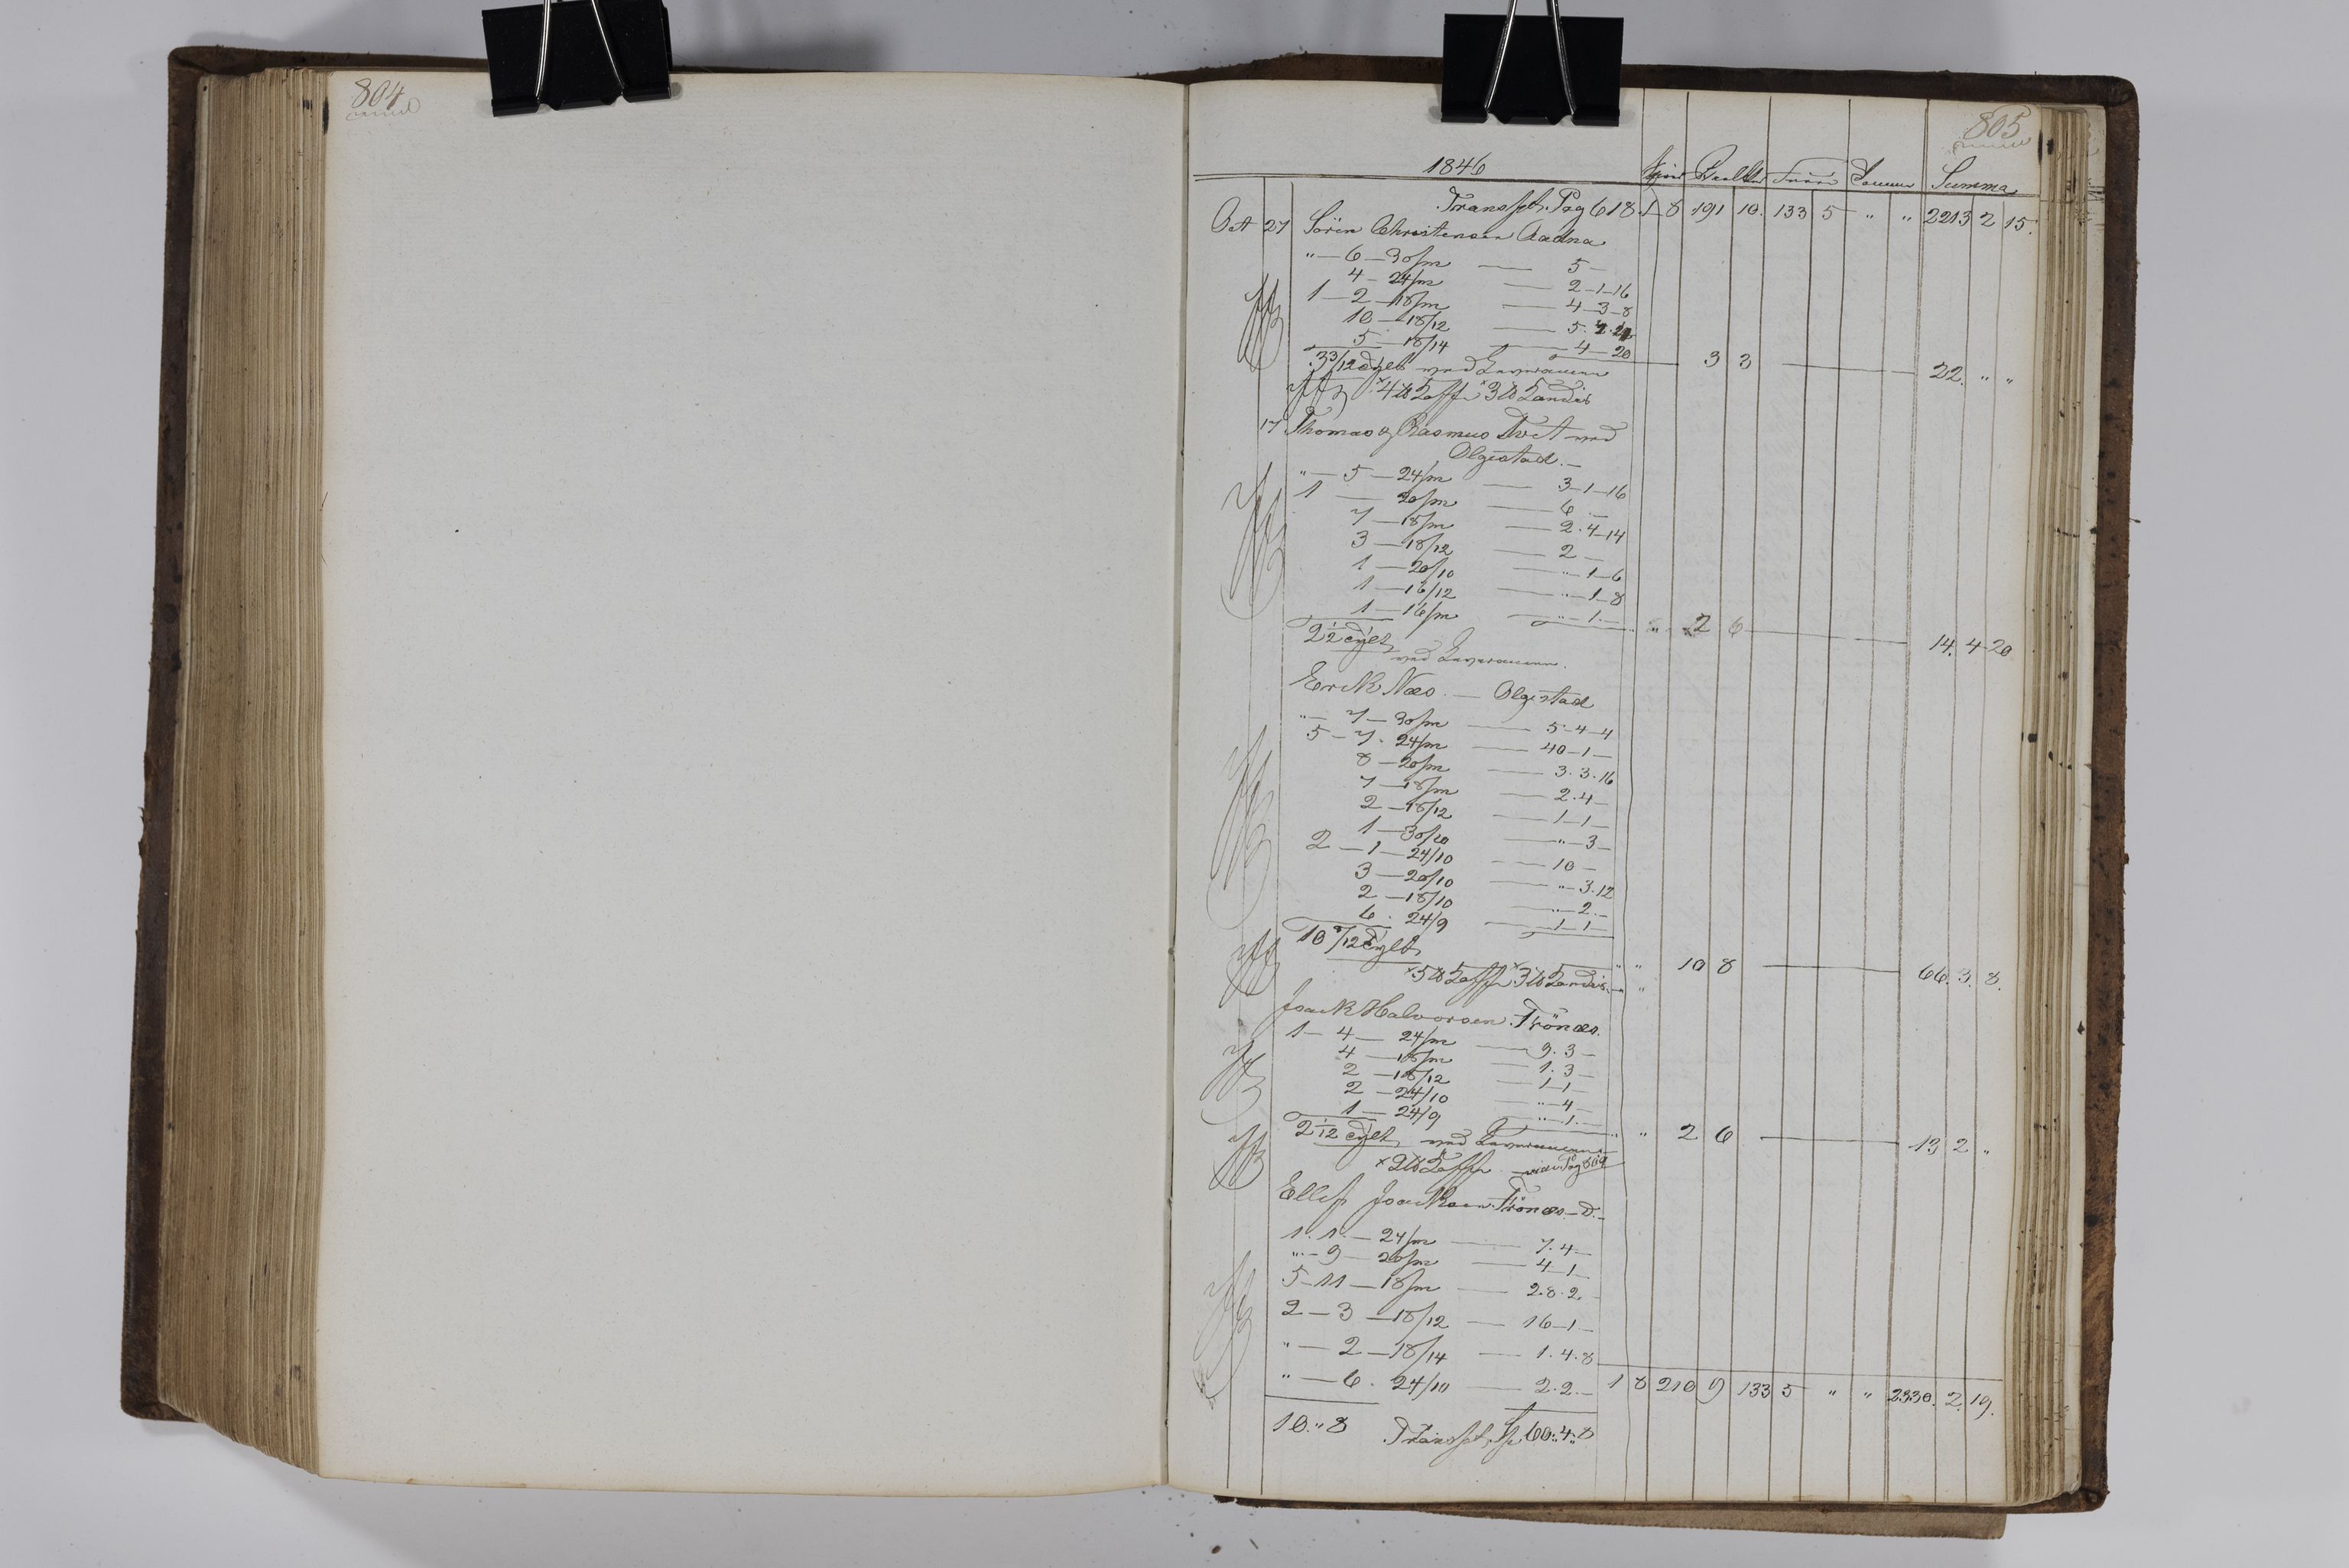 804
805
1846 Summa
Transpt. Pag 618 1 8 191 10 133 5 " " 2213 2 15
Oct 27 Sören Christensen Aadna
" — 6 — 30/m — 5 —
4 — 24/m — 2 — 1 — 16
1 — 2 — 18/m — 4 — 3 — 8
10 — 18/12 — 5
5 — 18/14 — 4 — 20
33/12 Tylt med Leverancen 3 3 — 22 " "
× 4 ℔ Caffe × 3 ℔ Candis
17 Thomas & Rasmus Tvet med
Olgestad. —
" — 5 — 24/m — 3 — 1 — 16
1 — 20/m — 6 —
7 — 18/m — 2 . 4 — 14
3 — 18/12 — 2 —
1 — 20/10 — " — 1 — 6
1 — 16/12 — " — 1 — 8
1 — 16/m — " — 1 —
" 2 6 — 14. 4 20
med Leverancen.
Erik Næs. — Olgestad
" — 7 — 30/m — 5 — 4 — 4
5 — 7 . 24/m — 40 — 1 —
8 — 20/m — 3 . 3 . 16
7 — 18/m — 2 . 4 —
2 — 18/12 — 1 — 1 —
1 — 30/10 — " — 3 —
2 — 1 — 24/10 — 10 —
3 — 20/10 — " — 3 . 12
2 — 18/10 — " — 2 . —
6 . 24/9 — 1 — 1 —
Tylt
× 5 ℔ Caffe × 3 ℔ Candis " " 10 8 — 66. 3. 8.
Joack Halvorsen Trönæs.
1 — 4 — 24/m — 9. 3 —
4 — 18/m — 1. 3 —
2 — 18/12 — 1 — 1 —
2 — 24/10 — " — 4 —
1 — 24/9 — " — 1. —
Tylt med Leverancen " 2 6 — 13 2 "
× 2 ℔ Caffe
Ellef Joacksen Trönæs — D. —
1 . 1 . — 24/m — 7. 4 —
" — 9 — 20/m — 4 — 1 —
5 — 11 — 18/m — 28. 2. —
2 — 3 — 18/12 — 16 — 1 —
" — 2 — 18/14 — 1. 4. 8
" — 6 . 24/10 — 2. 2. — 1 8 210 9 133 5 " " 2330. 2. 19.
10 " 8 Transpt. Sp 60: 4: 8